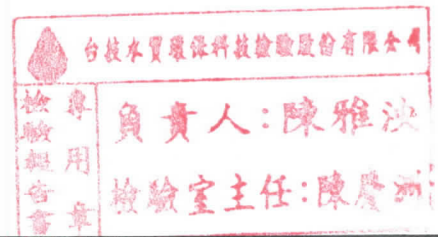 台技水質環保科技檢驗股份有限公司
檢驗報告書
專用章
負責人:陳雅
檢驗室主任:陳